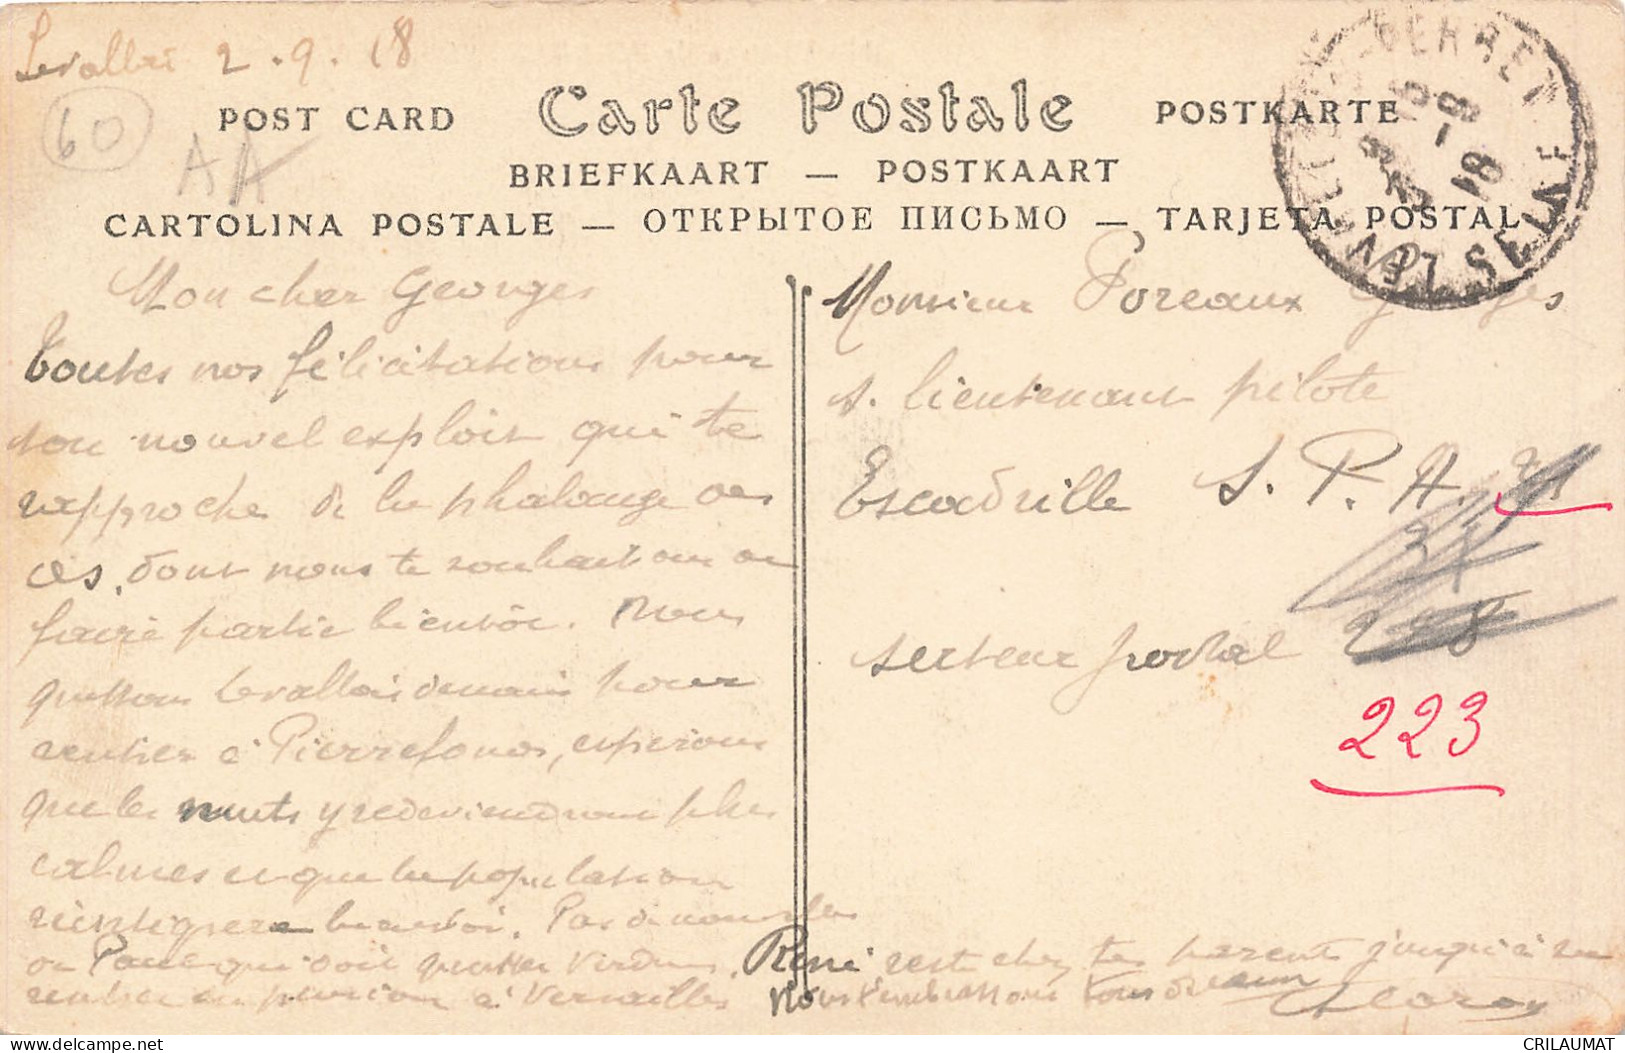 Levallois 2.9.18
60
AA
POST CARD Carte Postale POSTKARTE
BRIEFKAART — POSTKAART
CARTOLINA POSTALE — ОТКРЫТОЕ ПИСЬМО — TARJETA POSTAL
LEVALLOIS-PERRET
SEINE
5 -9 18
Mon cher Georges
Toutes nos félicitations pour
ton nouvel exploit qui te
rapproche de la phalange des
as, dont nous te souhaitons de
faire partie bientôt. Nous
quittons Levallois demain pour
rentrer à Pierrefonds, espérons
que les nuits y redeviendront plus
calmes et que la population
réintégrera bientôt. Pas de nouvelles
de Paul qui doit quitter Verdun
rentrer en permission à Versailles
René reste chez tes parents jusqu'à sa
Nous t'embrassons tous deux
Monsieur Poreaux Georges
s. lieutenant pilote
Escadrille S.P.A. 71
37
secteur postal 228
223
CRILAUMAT